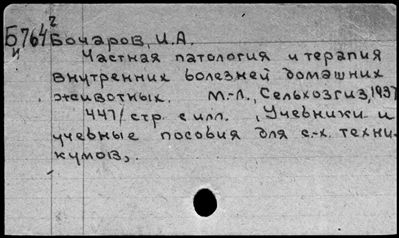 Б764 2
и
Бочаров, И.А.
Частная патология и терапия
внутренних болезней домашних
животных. М.-Л., Сельхозгиз, 1937
447/стр. с илл. , Учебники и
учебные пособия для с.-х. техни-
кумов,.